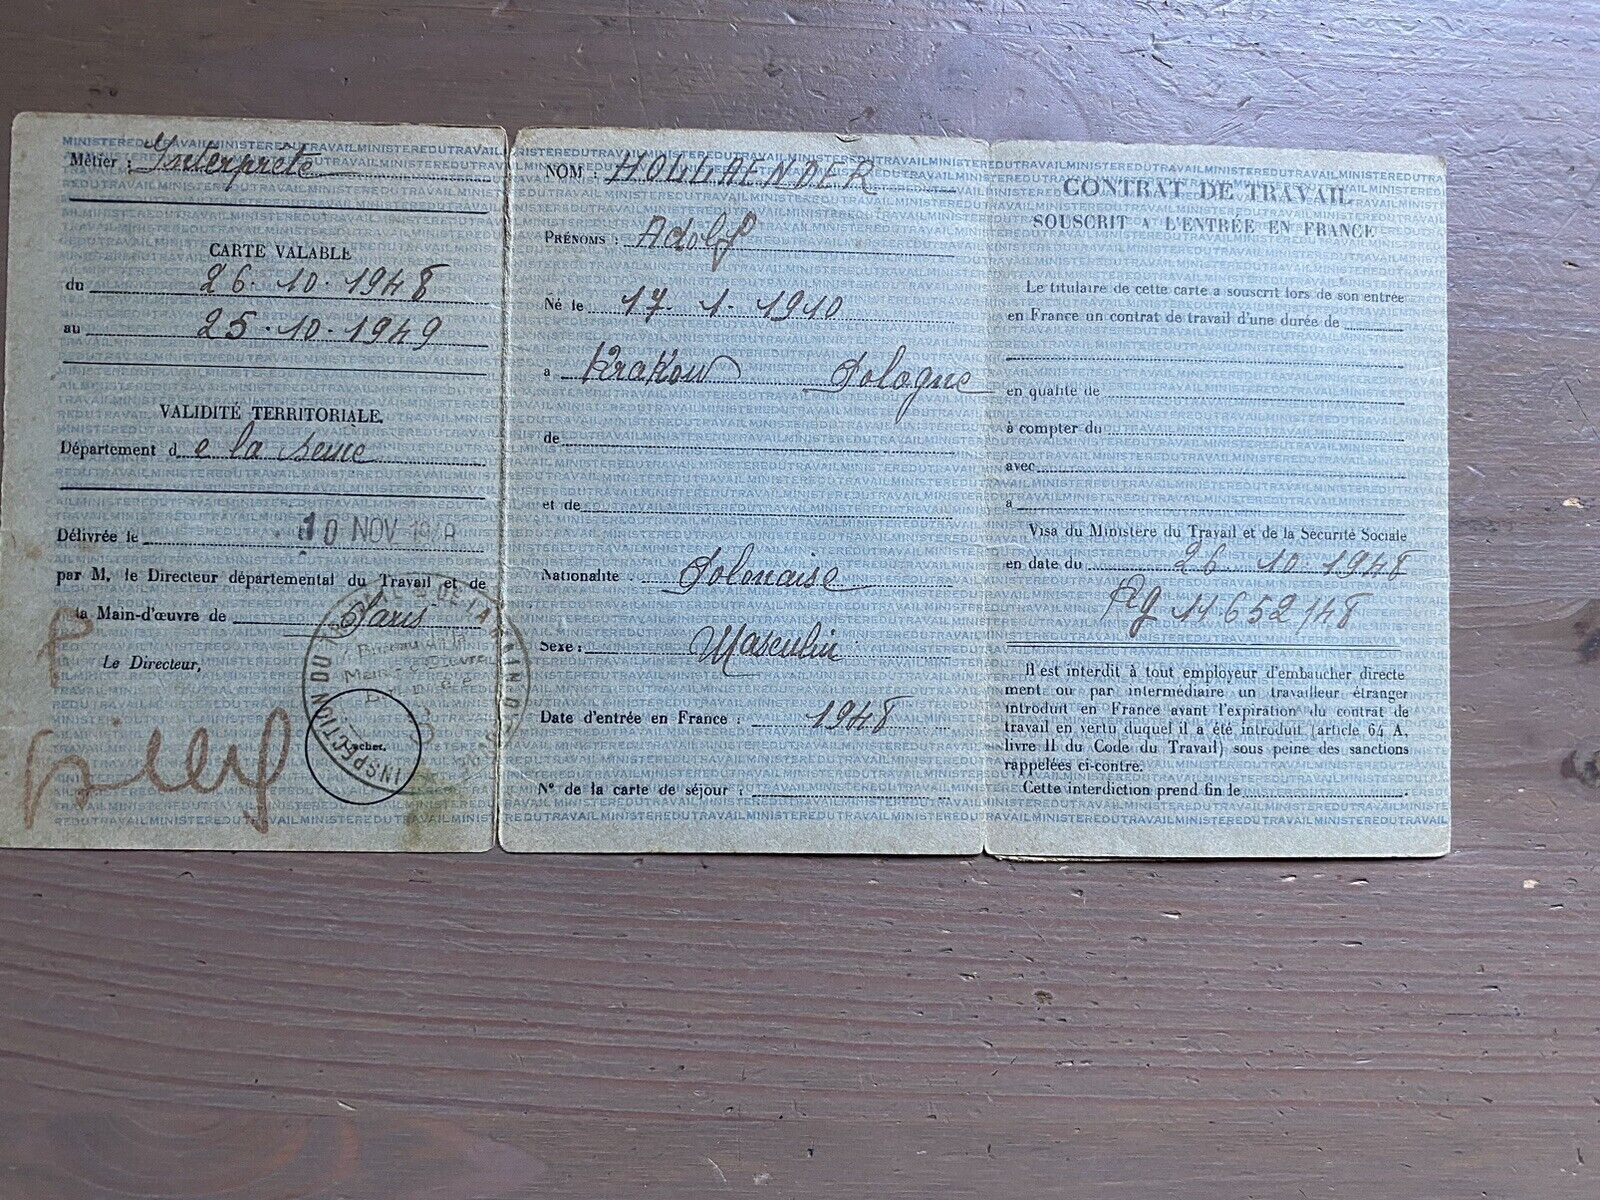 Métier : Interprète
CARTE VALABLE
du 26.10.1948
au 25.10.1949
VALIDITÉ TERRITORIALE.
Département de la Seine
Délivrée le 10 NOV 1948
par M. le Directeur départemental du Travail et de
la Main-d'œuvre de Paris
Le Directeur,
INSPECTION DU
cachet.
NOM : HOLLAENDER
PRÉNOMS : Adolf
Né le 17.1.1910
a Krakow Pologne
de
et de
Nationalité Polonaise
Sexe : Masculin
Date d'entrée en France : 1948
N° de la carte de séjour :
CONTRAT DE TRAVAIL
SOUSCRIT A L'ENTRÉE EN FRANCE
Le titulaire de cette carte a souscrit lors de son entrée
en France un contrat de travail d'une durée de
en qualité de
à compter du
avec
a
Visa du Ministère du Travail et de la Sécurité Sociale
en date du 26.10.1948
Rg 11652/48
Il est interdit à tout employeur d'embaucher directe
ment ou par intermédiaire un travailleur étranger
introduit en France avant l'expiration du contrat de
travail en vertu duquel il a été introduit (article 64 A,
livre II du Code du Travail) sous peine des sanctions
rappelées ci-contre.
Cette interdiction prend fin le